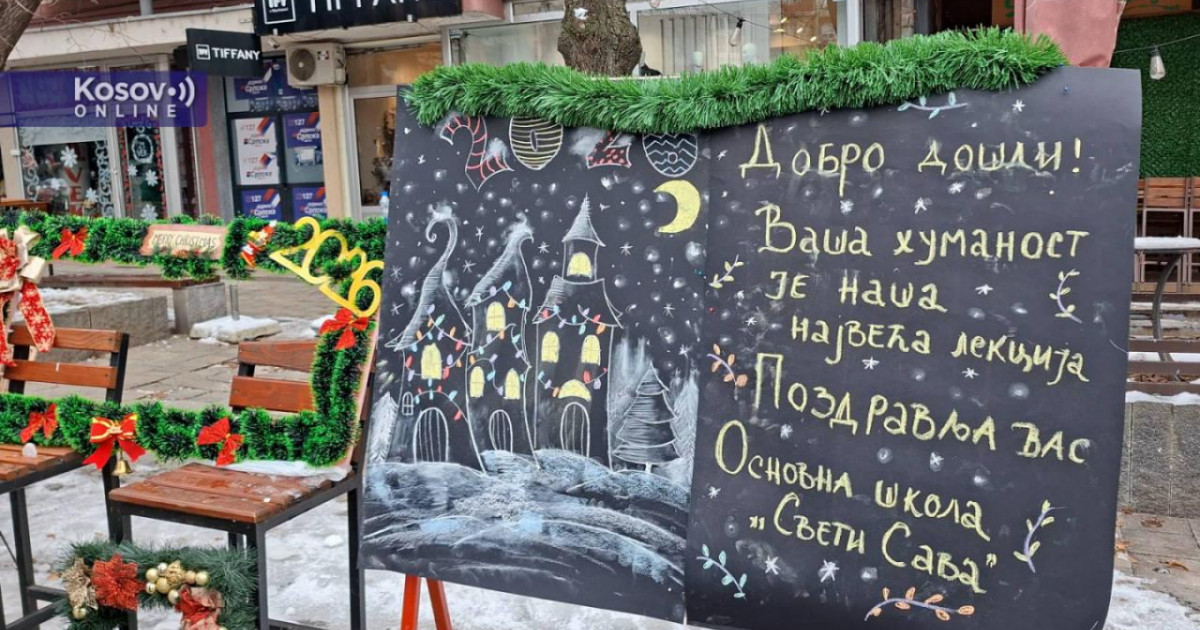 TIFFANY
TIFFANY
Kosovo
ONLINE
127
Српска
MERRY CHRISTMAS
2026
202
Добро дошли!
Ваша хуманост
је наша
највећа лекција
Поздравља вас
Основна школа
„Свети Сава”